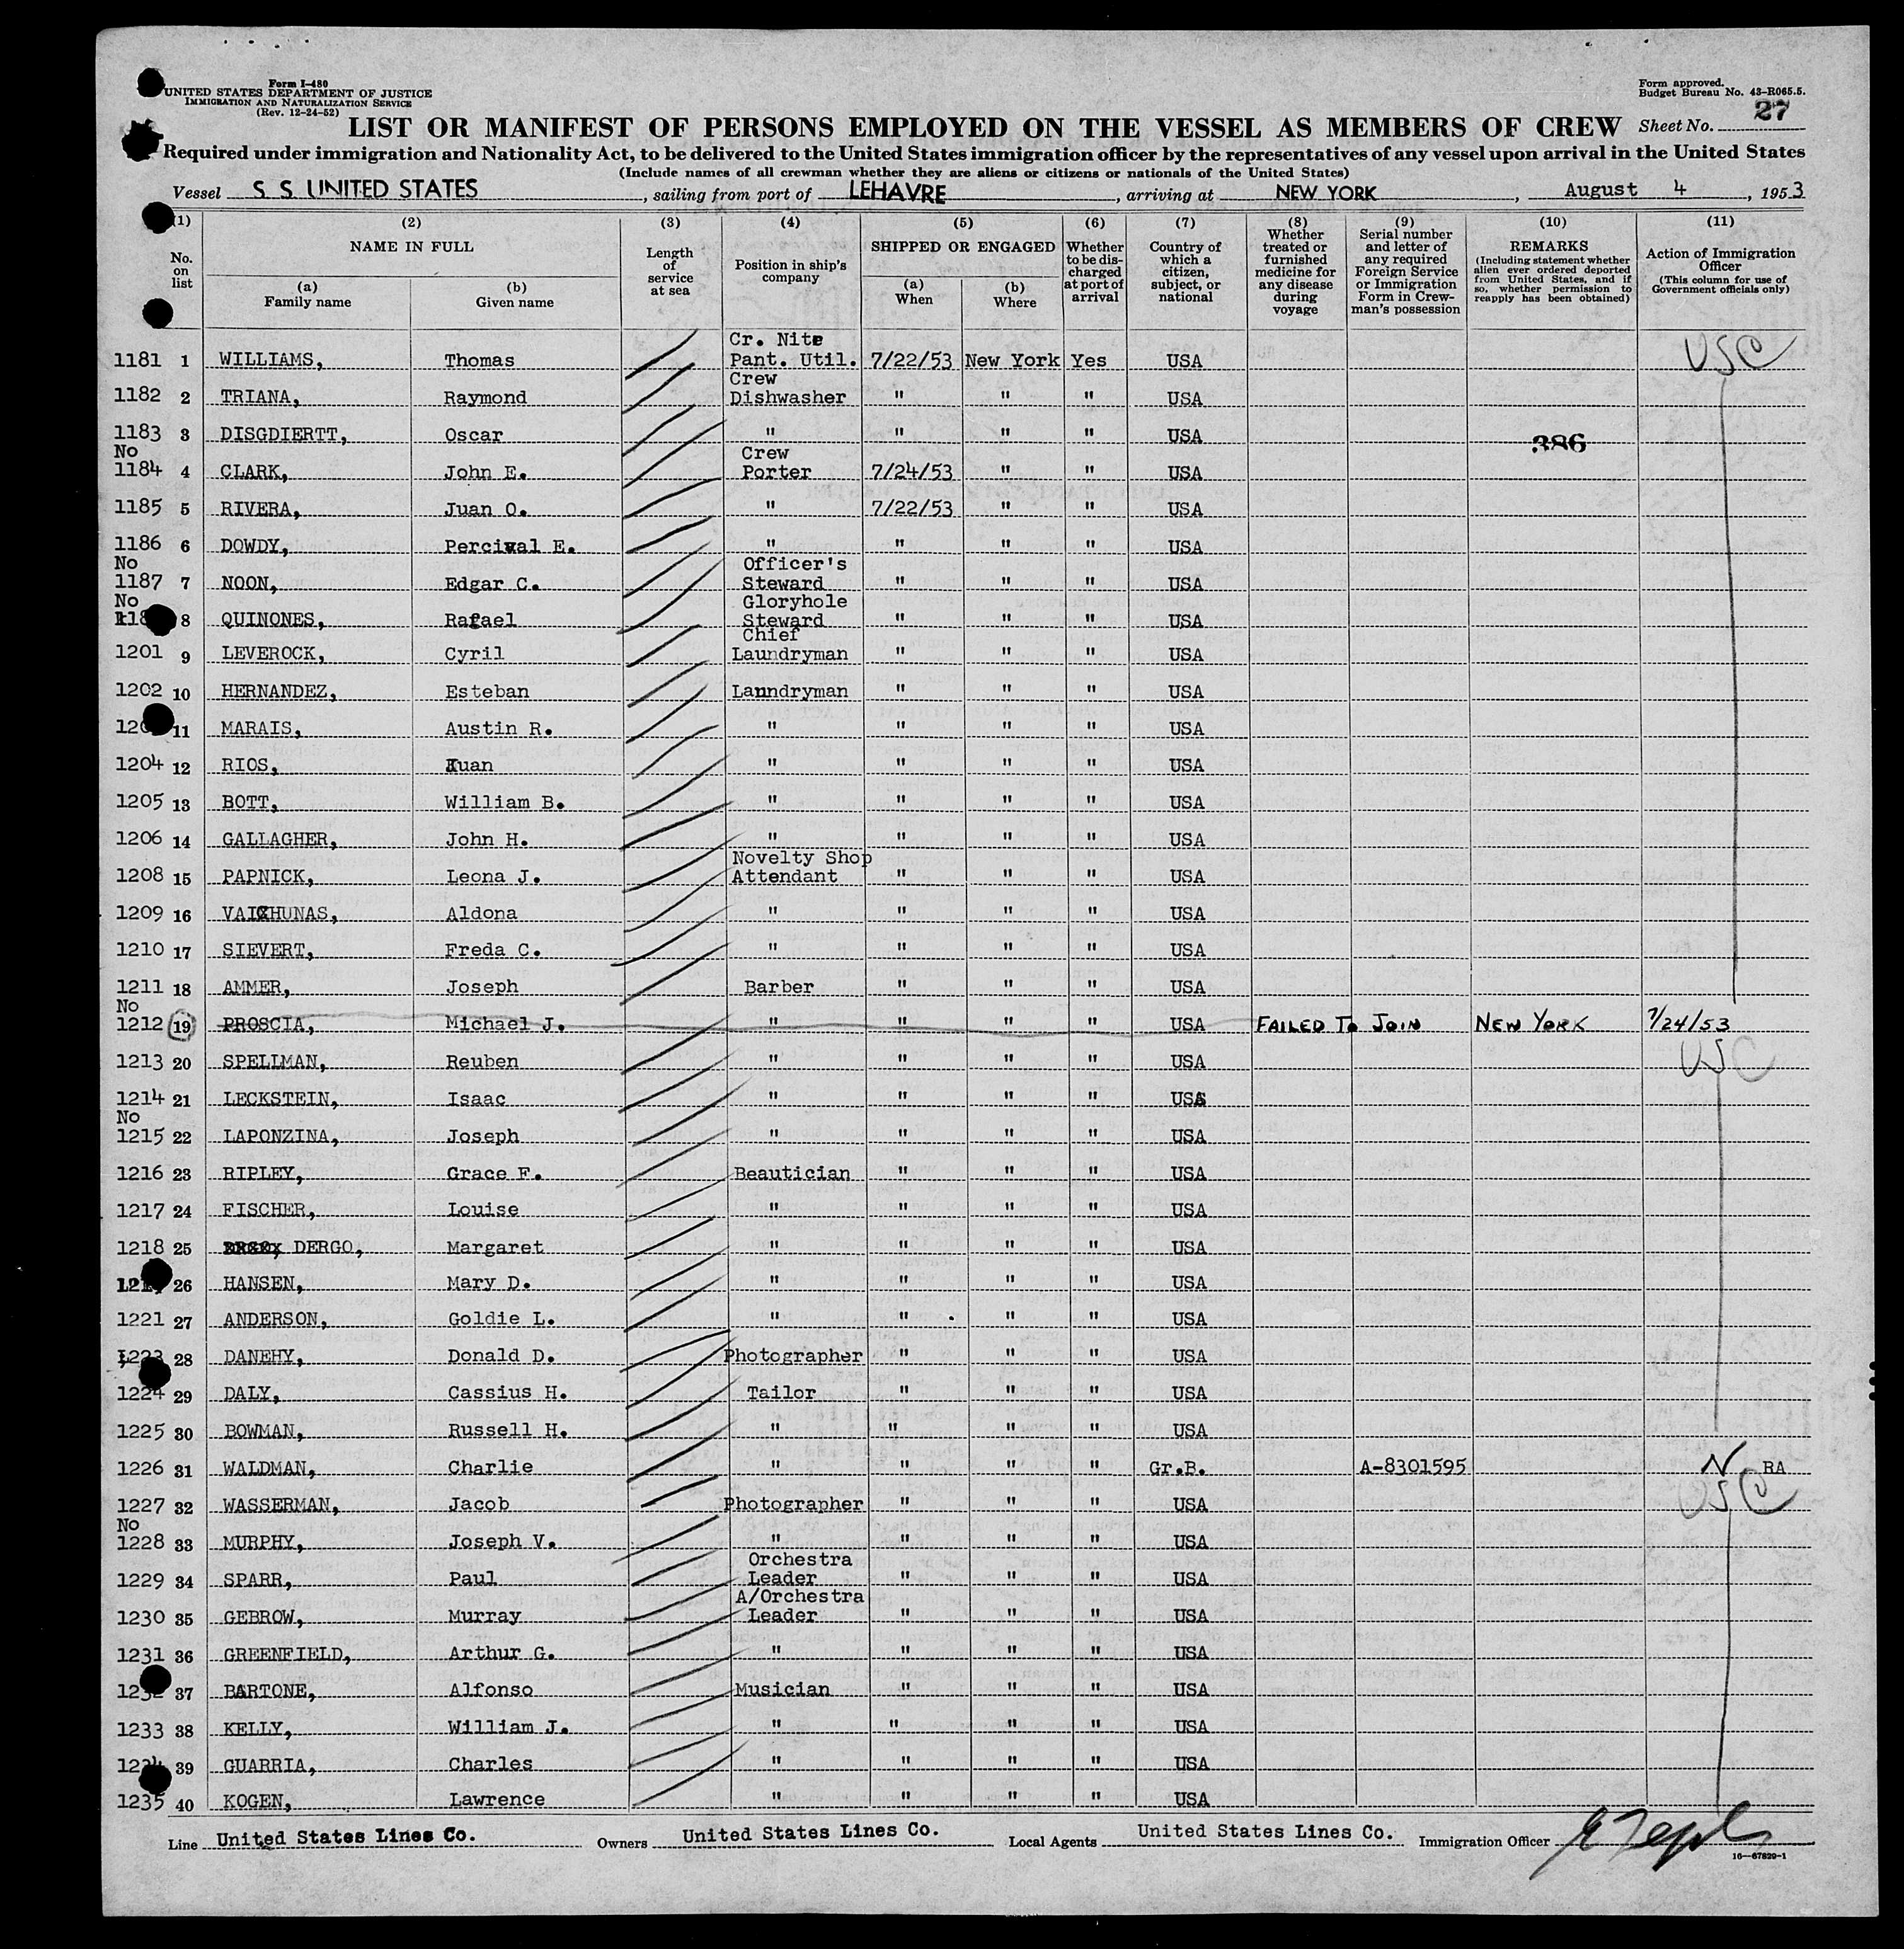 Form I-480
UNITED STATES DEPARTMENT OF JUSTICE
IMMIGRATION AND NATURALIZATION SERVICE
(Rev. 12-24-52)
Form approved.
Budget Bureau No. 43-R065.5.
LIST OR MANIFEST OF PERSONS EMPLOYED ON THE VESSEL AS MEMBERS OF CREW Sheet No. 27
Required under immigration and Nationality Act, to be delivered to the United States immigration officer by the representatives of any vessel upon arrival in the United States
(Include names of all crewman whether they are aliens or citizens or nationals of the United States)
Vessel S. S. UNITED STATES, sailing from port of LEHAVRE, arriving at NEW YORK, August 4, 1953
(1) (2) (3) (4) (5) (6) (7) (8) (9) (10) (11)
No. on list
NAME IN FULL
(a) Family name
(b) Given name
Length of service at sea
Position in ship's company
SHIPPED OR ENGAGED
(a) When
(b) Where
Whether to be discharged at port of arrival
Country of which a citizen, subject, or national
Whether treated or furnished medicine for any disease during voyage
Serial number and letter of any required Foreign Service or Immigration Form in Crewman's possession
REMARKS
(Including statement whether alien ever ordered deported from United States, and if so, whether permission to reapply has been obtained)
Action of Immigration Officer
(This column for use of Government officials only)
1181 1 WILLIAMS, Thomas Cr. Nite Pant. Util. 7/22/53 New York Yes USA USC
1182 2 TRIANA, Raymond Crew Dishwasher " " " USA
1183 3 DISGDIERTT, Oscar " " " " USA 386
No 1184 4 CLARK, John E. Crew Porter 7/24/53 " " USA
1185 5 RIVERA, Juan O. " 7/22/53 " " USA
1186 6 DOWDY, Percival E. " " " " USA
No 1187 7 NOON, Edgar C. Officer's Steward " " " USA
No 8 QUINONES, Rafael Gloryhole Steward " " " USA
1201 9 LEVEROCK, Cyril Chief Laundryman " " " USA
1202 10 HERNANDEZ, Esteban Laundryman " " " USA
11 MARAIS, Austin R. " " " " USA
1204 12 RIOS, Juan " " " " USA
1205 13 BOTT, William B. " " " " USA
1206 14 GALLAGHER, John H. " " " " USA
1208 15 PAPNICK, Leona J. Novelty Shop Attendant " " " USA
1209 16 VAICHUNAS, Aldona " " " " USA
1210 17 SIEVERT, Freda C. " " " " USA
1211 18 AMMER, Joseph Barber " " " USA
No 1212 19 PROSCIA, Michael J. " " " " USA FAILED TO JOIN NEW YORK 7/24/53
1213 20 SPELLMAN, Reuben " " " " USA USC
1214 21 LECKSTEIN, Isaac " " " " USA
No 1215 22 LAPONZINA, Joseph " " " " USA
1216 23 RIPLEY, Grace F. Beautician " " " USA
1217 24 FISCHER, Louise " " " " USA
1218 25 DERGO, Margaret " " " " USA
26 HANSEN, Mary D. " " " " USA
1221 27 ANDERSON, Goldie L. " " " " USA
1223 28 DANEHY, Donald D. Photographer " " " USA
1224 29 DALY, Cassius H. Tailor " " " USA
1225 30 BOWMAN, Russell H. " " " " USA
1226 31 WALDMAN, Charlie " " " " Gr.B. A-8301595 RA
1227 32 WASSERMAN, Jacob Photographer " " " USA USC
No 1228 33 MURPHY, Joseph V. " " " " USA
1229 34 SPARR, Paul Orchestra Leader " " " USA
1230 35 GEBROW, Murray A/Orchestra Leader " " " USA
1231 36 GREENFIELD, Arthur G. " " " " USA
1232 37 BARTONE, Alfonso Musician " " " USA
1233 38 KELLY, William J. " " " " USA
1234 39 GUARRIA, Charles " " " " USA
1235 40 KOGEN, Lawrence " " " " USA
Line United States Lines Co. Owners United States Lines Co. Local Agents United States Lines Co. Immigration Officer
16—67829-1